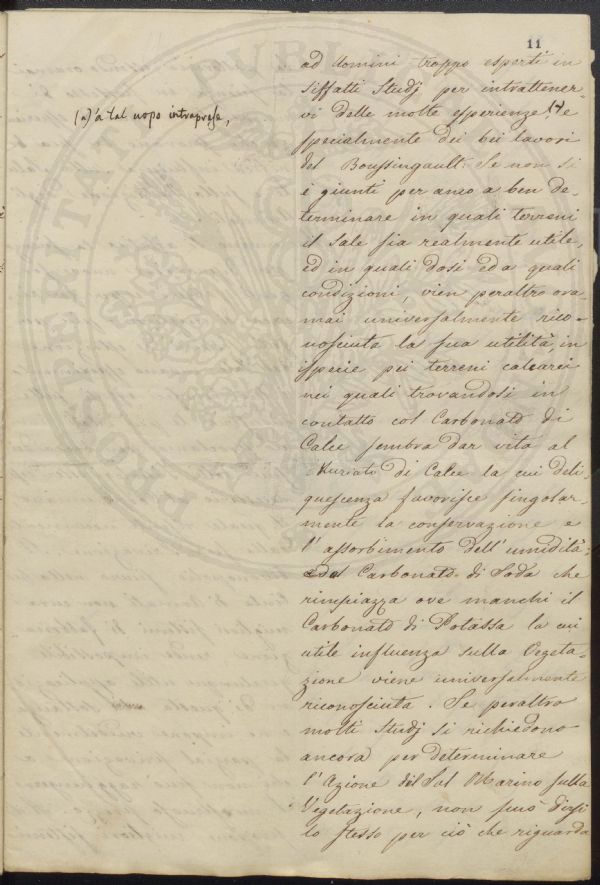 11
(a) à tal uopo intraprese,
ad uomini troppo esperti in
siffatti Studj per intrattener-
vi delle molte esperienze (a) e
specialmente dei bei lavori
del Boussingault. Se non si
è giunti per anco a ben de-
terminare in quali terreni
il Sale sia realmente utile,
ed in quali dosi ed a quali
condizioni, vien peraltro ora-
mai universalmente rico-
nosciuta la sua utilità, in
ispecie pei terreni calcarei
nei quali trovandosi in
contatto col Carbonato di
Calce sembra dar vita al
Muriato di Calce la cui deli-
quescenza favorisce singolar-
mente la conservazione e
l'assorbimento dell'umidità;
ed al Carbonato di Soda che
rimpiazza ove manchi il
Carbonato di Potassa la cui
utile influenza sulla Vegeta-
zione viene universalmente
riconosciuta. Se peraltro
molti Studj si richiedono
ancora per determinare
l'Azione del Sal Marino sulla
Vegetazione, non può dirsi
lo stesso per ciò che riguarda
PVBLICAE
PROSPERITATI